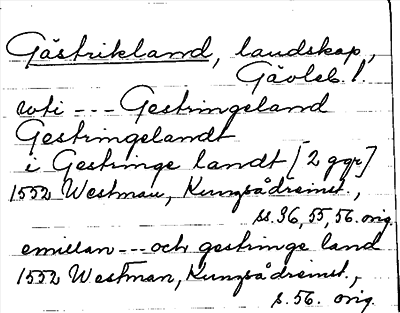 Gästrikland, landskap,
Gävleb. l.
uti --- Gestringeland
Gestringelandt
i Gestringe landt [2 ggr]
1552 Westman, Kungsådreinst.,
ss. 36, 55, 56. orig.
emillan --- och gestringe land
1552 Westman, Kungsådreinst.,
s. 56. orig.